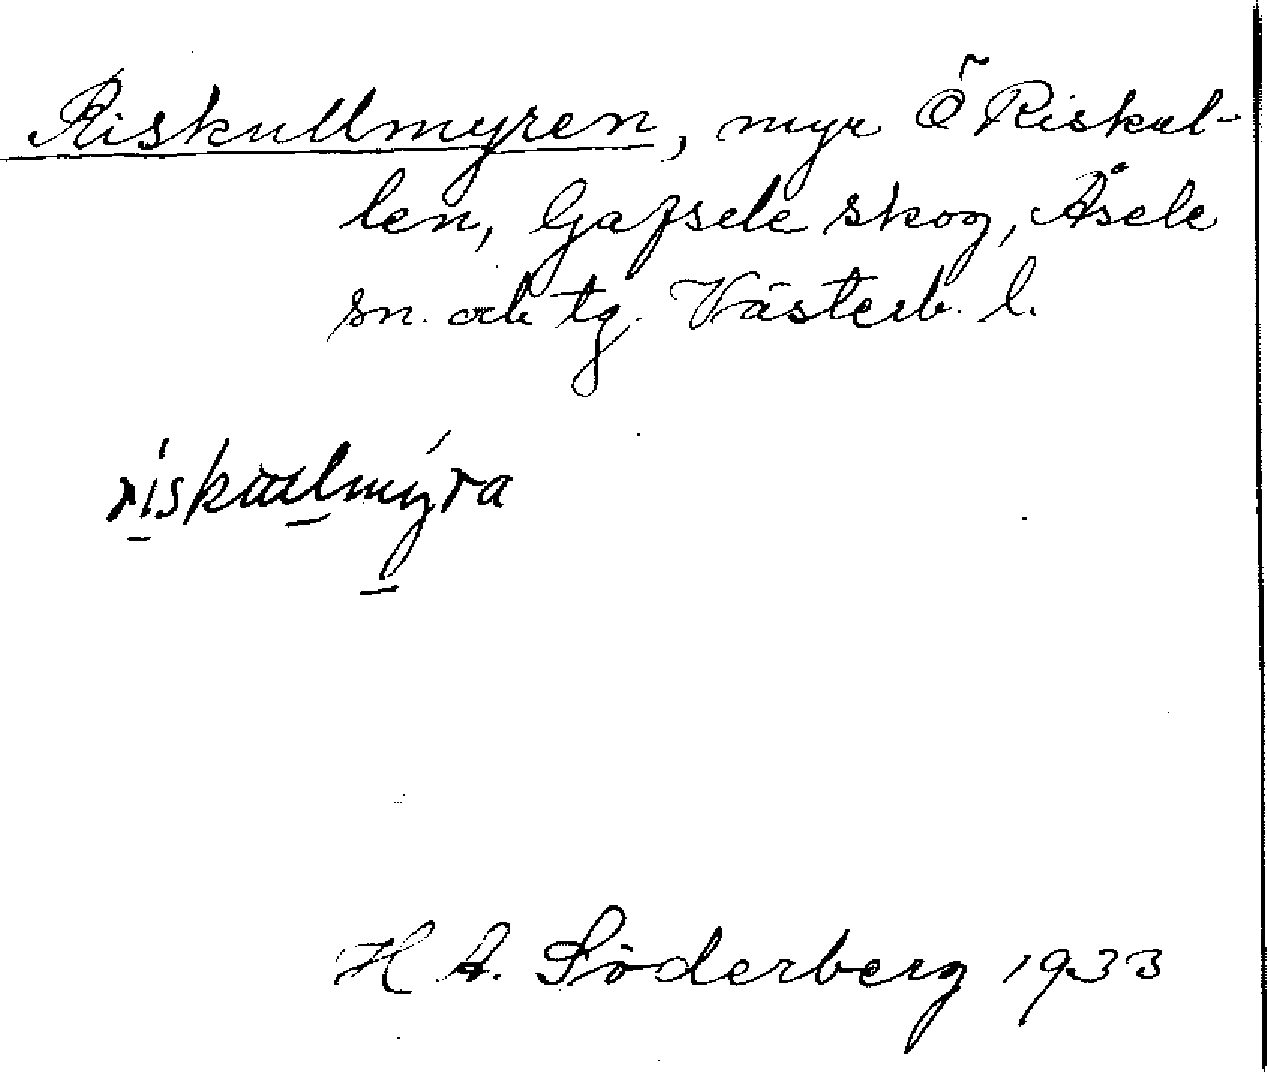 Riskullmyren, myr Ö Riskul-
len, Gafsele skog, Åsele
sn. och tg. Västerb. l.
H A. Söderberg 1933